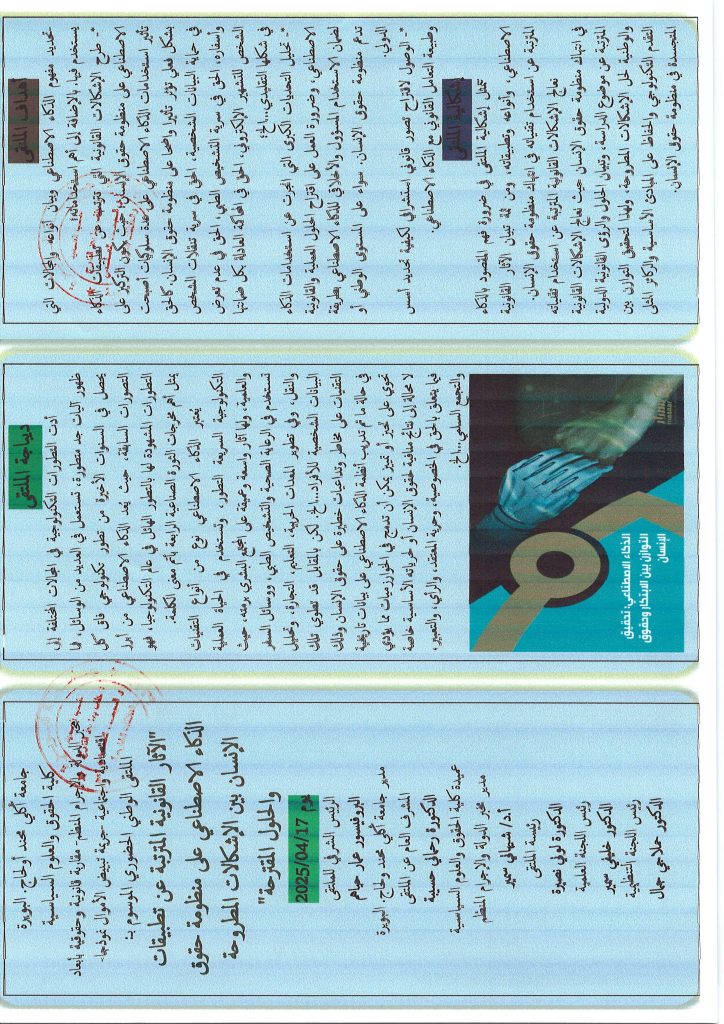 جامعة أكلي محند أولحاج البويرة
كلية الحقوق والعلوم السياسية
مخبر الدولة والإجرام المنظم- مقاربة قانونية وحقوقية بأبعاد
اقتصادية واجتماعية -جريمة تبييض الأموال نموذجا-
الملتقى الوطني الحضوري الموسوم بـ:
"الآثار القانونية المترتبة عن تطبيقات
الذكاء الاصطناعي على منظومة حقوق
الإنسان بين الإشكالات المطروحة
والحلول المقترحة"
يوم 2025/04/17
الرئيس الشرفي للملتقى
البروفيسور عمار حياهم
مدير جامعة أكلي محند ولحاج البويرة
المشرف العام عن الملتقى
الدكتورة رحماني حسيبة
عميدة كلية الحقوق والعلوم السياسية
مدير مخبر الدولة والإجرام المنظم
أ.د/ شيهاني سمير
رئيسة الملتقى
الدكتورة لوني نصيرة
رئيس اللجنة العلمية
الدكتور خليفي سمير
رئيس اللجنة التنظيمية
الدكتور حلاحي جمال
ديباجة الملتقى
أدت التطورات التكنولوجية في المجالات المختلفة إلى
ظهور آليات جد متطورة، تستعمل في العديد من الوسائل، فما
يحصل في السنوات الأخيرة من تطور تكنولوجي فاق كل
التصورات السابقة، حيث يعد الذكاء الاصطناعي من أبرز
التطورات المشهودة لها بالتطور الهائل في عالم التكنولوجيا، فهو
يمثل أهم مخرجات الثورة الصناعية الرابعة بأتم معنى الكلمة.
يُعتبر الذكاء الاصطناعي نوع من أنواع التقنيات
التكنولوجية السريعة التطور، وتستخدم في الحياة العملية
والعلمية، ولها آثار واسعة وعميقة على المجتمع البشري برمته، حيث
تستخدم في الرعاية الصحية والتشخيص الطبي، ووسائل السفر
والنقل، وفي تطوير المعدات الحربية، التعليم، التجارة، وتحليل
البيانات الشخصية للأفراد...الخ. لكن بالمقابل قد تنطوي تلك
التقنيات على مخاطر وتداعيات خطيرة على حقوق الإنسان وذلك
في حالة ما تم تدريب أنظمة الذكاء الاصطناعي على بيانات تاريخية
تحوي على تحيز أو تمييز يمكن أن تدمج في الخوارزميات مما يؤدي
لا محالة إلى نتائج منافية لحقوق الإنسان أو حرياته الأساسية خاصة
فيما يتعلق بالحق في الخصوصية، وحرية المعتقد، والرأي، والتعبير،
والتجمع السلمي...الخ.
الذكاء الاصطناعي: تحقيق
التوازن بين الابتكار وحقوق
الإنسان
أهداف الملتقى
تحديد مفهوم الذكاء الاصطناعي وبيان أنواعه والمجالات التي
يستخدم فيها، بالإضافة إلى أهم استخداماته.
*- طرح الإشكالات القانونية التي تفرضها عن تطبيقات الذكاء
الاصطناعي على منظومة حقوق الإنسان، حيث يكون التركيز على
تأثير استخدامات الذكاء الاصطناعي على عدة سلوكيات أصبحت
بشكل فعلي تؤثر تأثيرا واضحا على منظومة حقوق الإنسان، كالحق
في حماية البيانات الشخصية، الحق في سرية تنقلات الشخص
وأسفاره، الحق في سرية التشخيص الطبي، الحق في عدم تعرض
الشخص للتشهير الإلكتروني، الحق في المحاكمة العادلة بكل ضماناتها
في شكلها التقليدي...الخ؛
*- تحليل التحديات الكبرى التي انجرت عن استخدامات الذكاء
الاصطناعي، وضرورة العمل على اقتراح الحلول العملية والقانونية
لضمان الاستخدام المسؤول والأخلاقي للذكاء الاصطناعي بطريقة
تدعم منظومة حقوق الإنسان، سواء على المستوى الوطني أو
الدولي.
*- الوصول لاقتراح تصور قانوني استشرافي لكيفية تحديد أسس
وطبيعة التعامل القانوني مع الذكاء الاصطناعي
إشكالية الملتقى
تتمثل إشكالية الملتقى في ضرورة فهم المقصود بالذكاء
الاصطناعي، وأنواعه وتطبيقاته، ومن ثمة تبيان الآثار القانونية
المترتبة عن استخدام تقنياته في انتهاك منظومة حقوق الإنسان.
تعالج الإشكالات القانونية المترتبة عن استخدام تقنياته
في انتهاك منظومة حقوق الإنسان حيث تعالج الإشكالات القانونية
المترتبة عن موضوع الدراسة، وتبيان الحلول والرؤى القانونية الدولية
والوطنية لحل الإشكالات المطروحة، ولهذا لتحقيق التوازن بين
التقدم التكنولوجي والحفاظ على المبادئ الأساسية والركائز المثلى
المتجسدة في منظومة حقوق الإنسان.